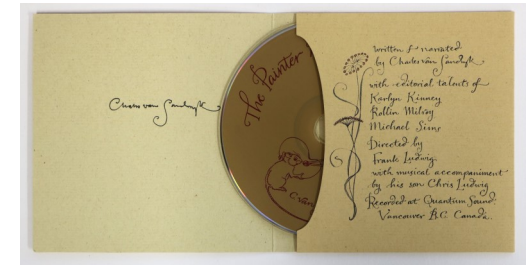 Charles van Sandwyk
The Painter
written & narrated
by Charles van Sandwyk
with editorial talents of
Karlyn Kinney
Rollin Milroy
Michael Sims
Directed by
Frank Ludwig
with musical accompaniment
by his son Chris Ludwig
Recorded at Quantum Sound
Vancouver B.C. Canada.